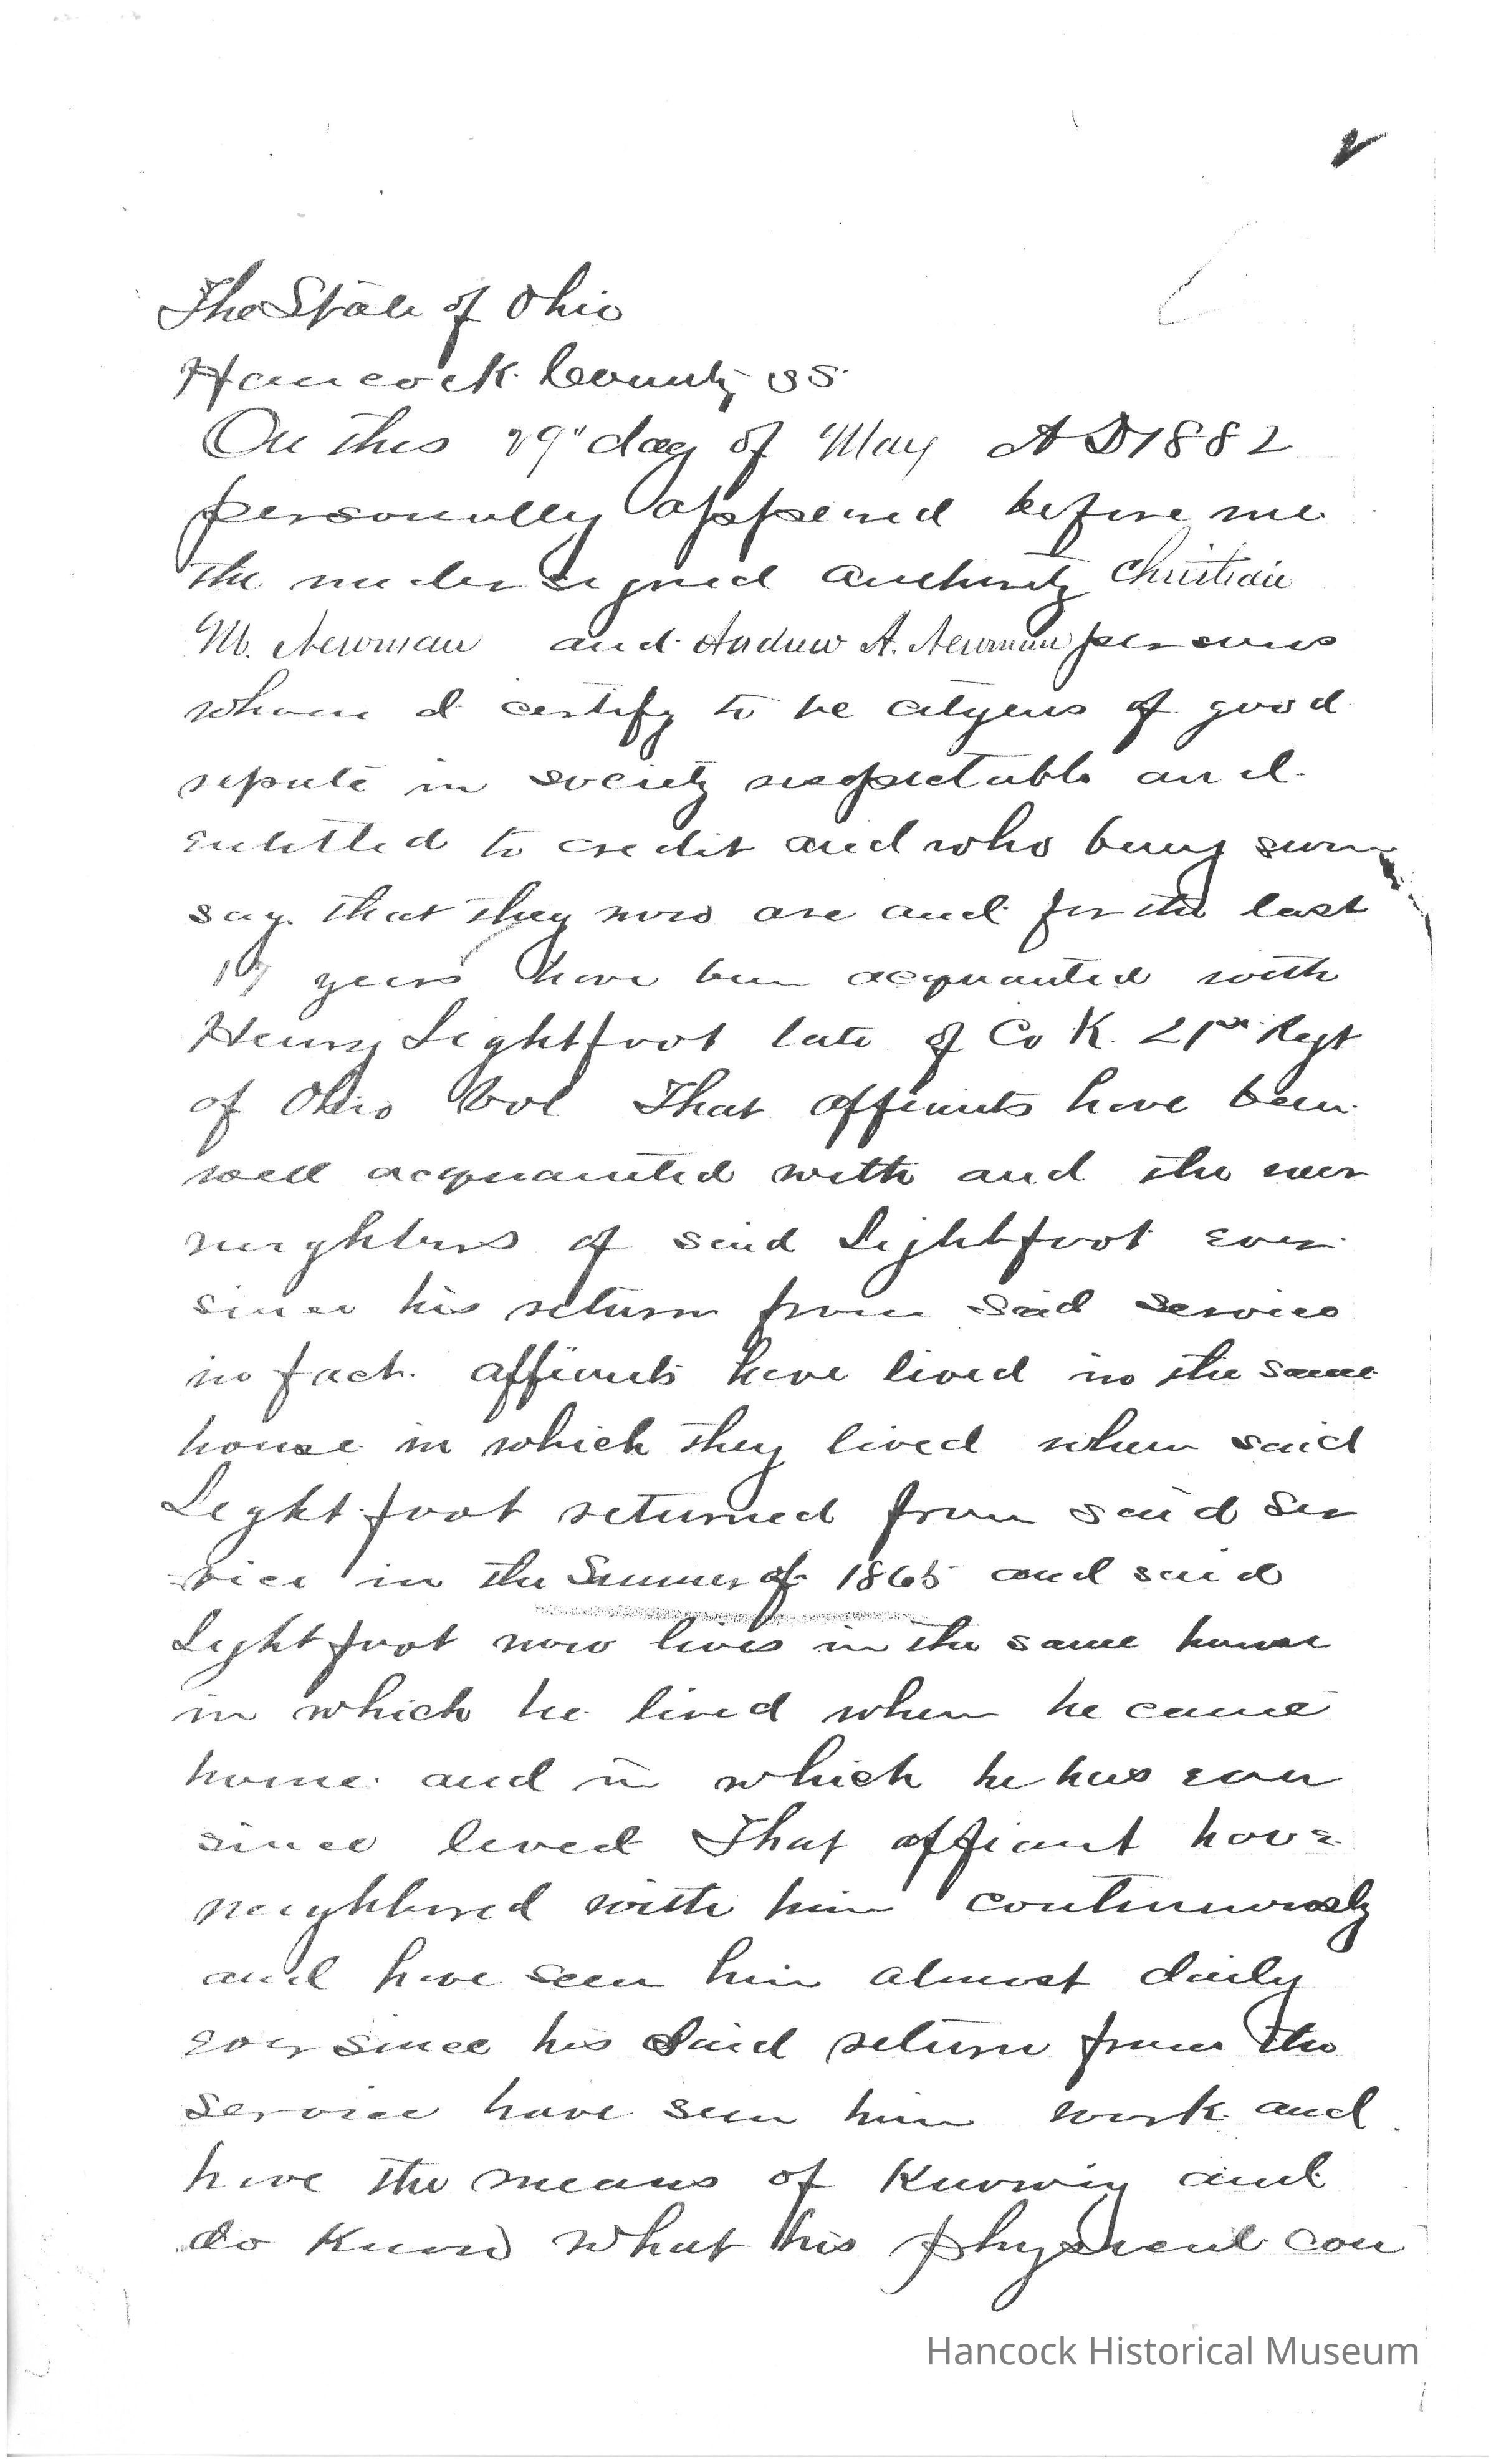 The State of Ohio
Hancock County SS
On this 29" day of May AD 1882
personally appeared before me
the undersigned authority Christian
M. Newman and Andrew A. Newman persons
whom I certify to be citizens of good
repute in society respectable and
entitled to credit and who being sworn
say that they now are and for the last
17 years have been acquainted with
Henry Lightfoot late of Co K. 21st Regt
of Ohio Vol That affiants have been
well acquainted with and the near
neighbors of said Lightfoot ever
since his return from said service
in fact affiants have lived in the same
house in which they lived when said
Lightfoot returned from said ser
vice in the Summer of 1865 and said
Lightfoot now lives in the same house
in which he lived when he came
home and in which he has ever
since lived That affiant have
neighbored with him continuously
and have seen him almost daily
ever since his said return from the
service have seen him work and
have the means of knowing and
do know what his physical con
Hancock Historical Museum